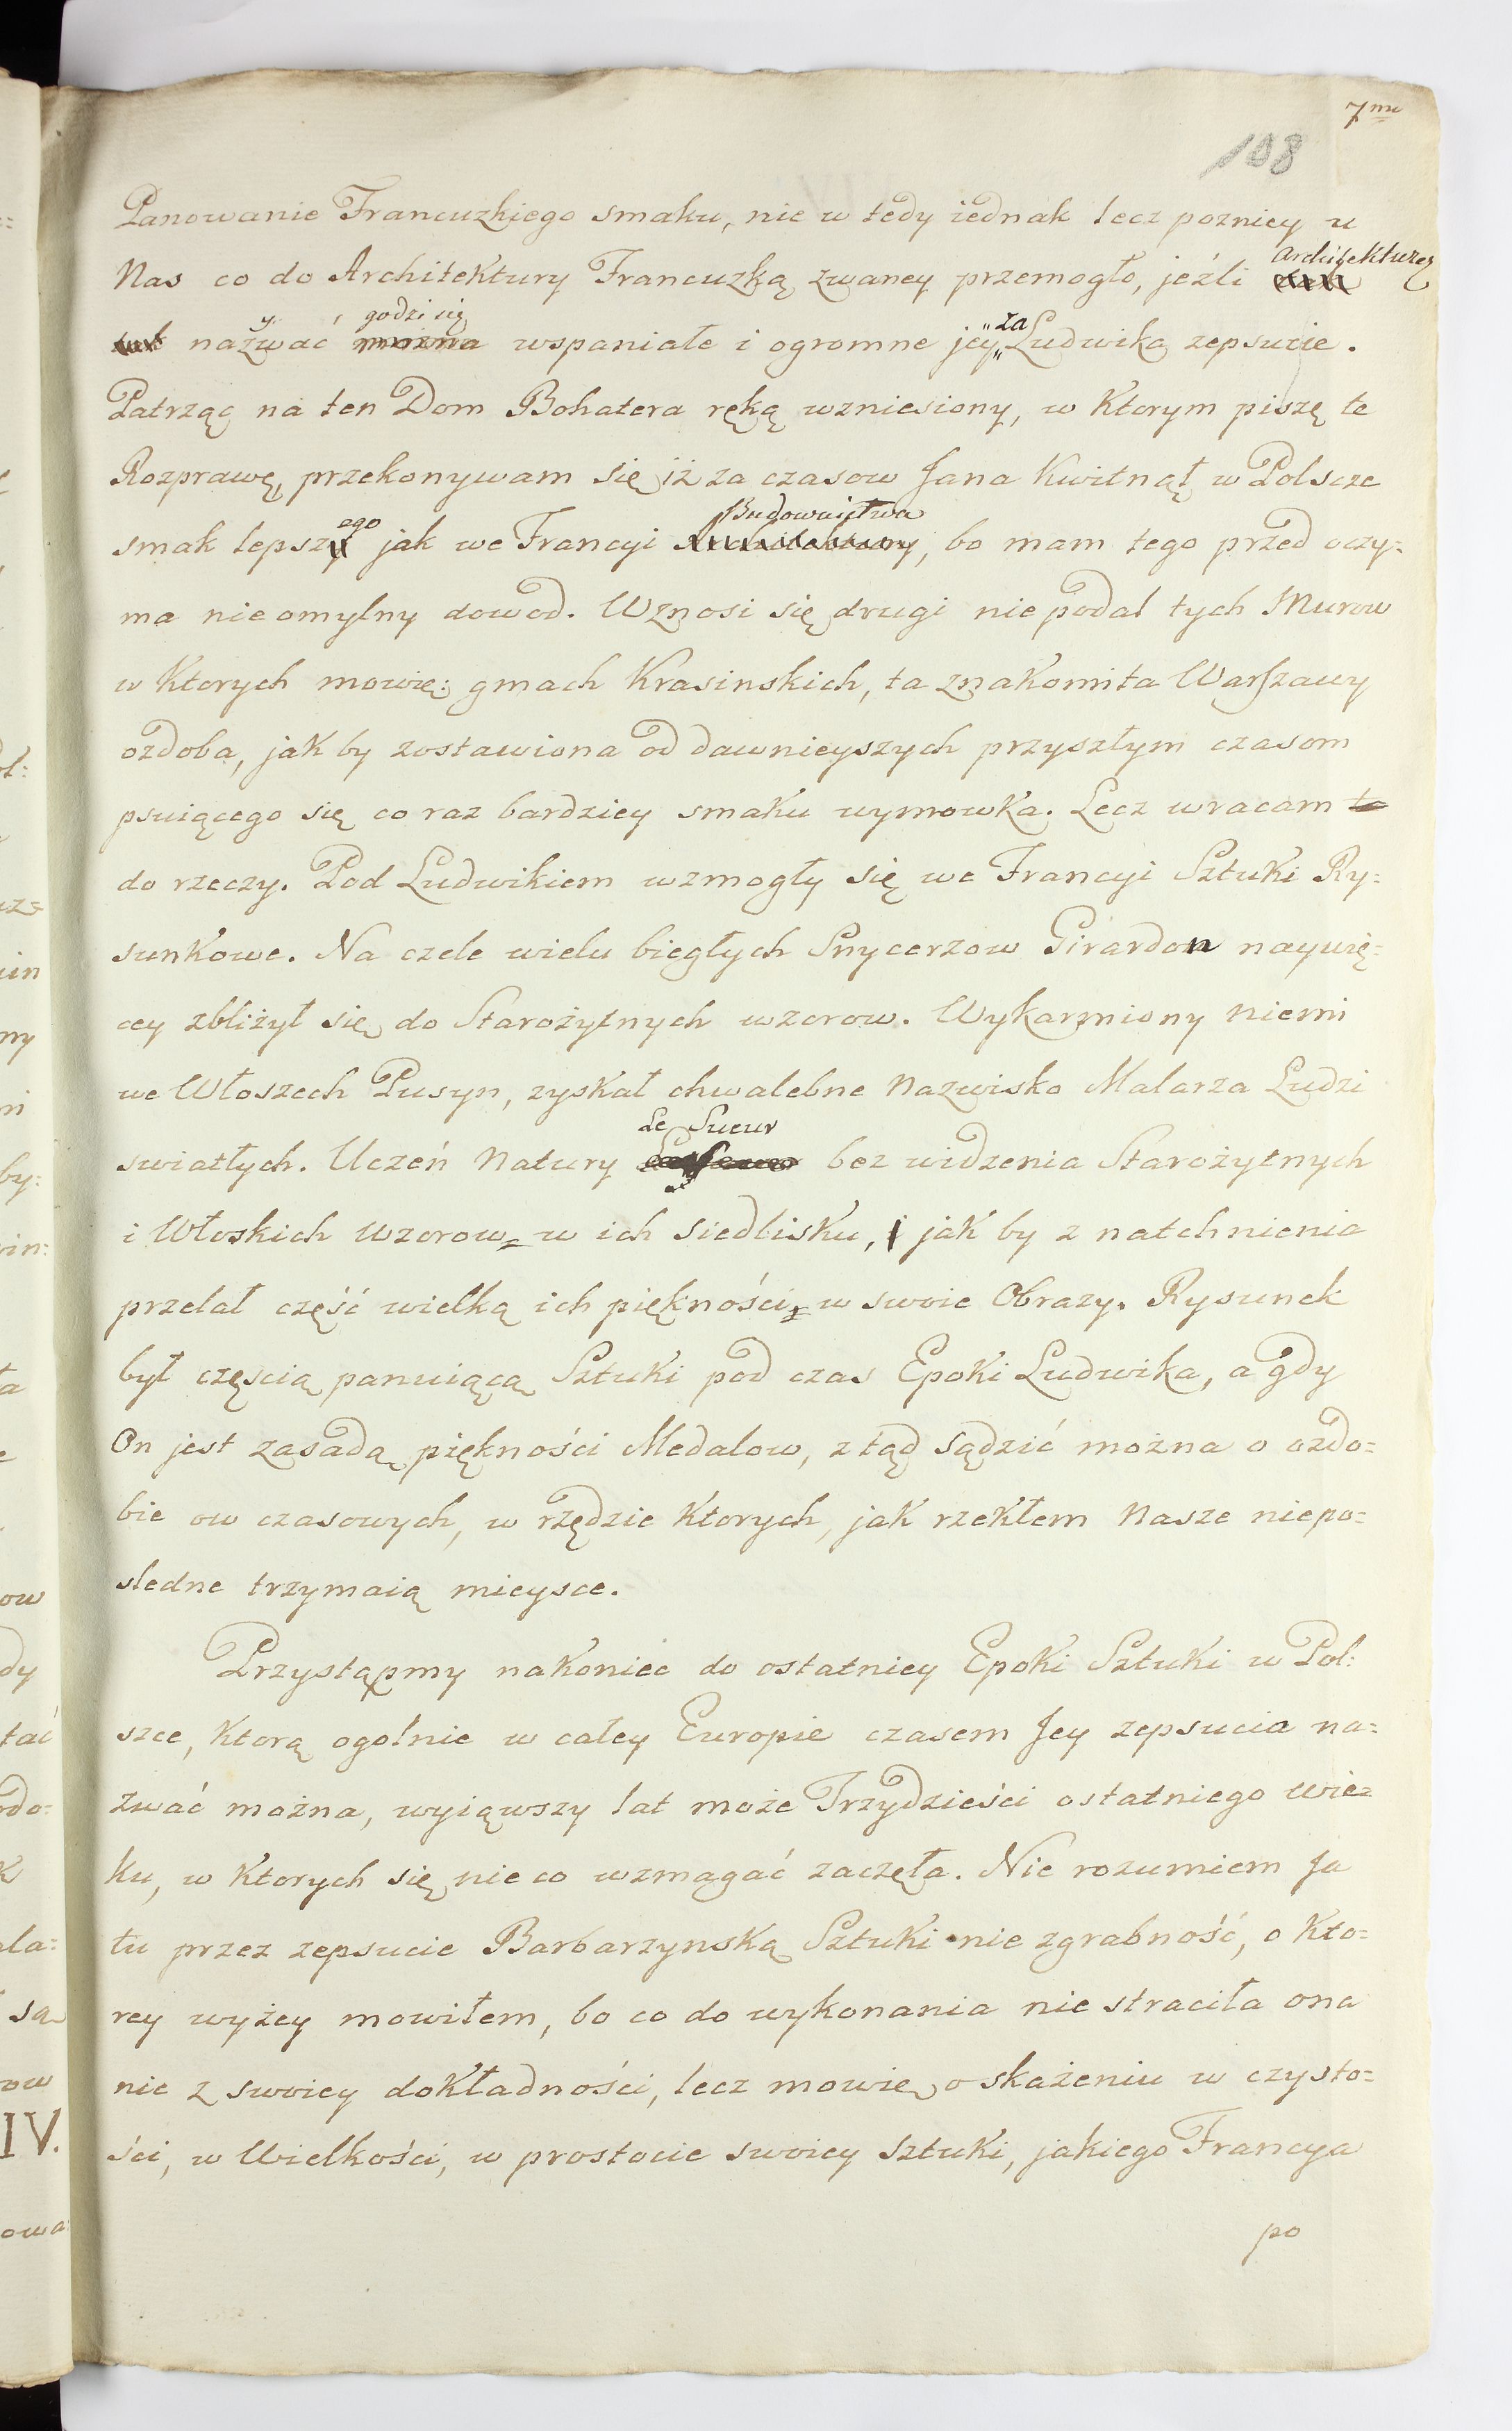 7me
108
Panowanie Francuzkiego smaku, nie w tedy iednak lecz pozniey u
Architekturę
Nas co do Architektury Francuzką zwaney przemogło, jeźli
y godzi się za
nazwać można wspaniałe i ogromne jey Ludwika zepsucie.
Patrząc na ten Dom Bohatera ręką wzniesiony, w Ktorym piszę te
Rozprawę, przekonywam się iż za czasow Jana Kwitnął w Polscze
ego Budownictwa
smak lepszy jak we Francyi Architektury, bo mam tego przed oczy=
ma nieomylny dowod. Wznosi się drugi nie podal tych Murow
w Ktorych mowię: gmach Krasinskich, ta znakomita Warszawy
ozdoba, jak by zostawiona od dawnieyszych przyszłym czasom
psuiącego się co raz bardziey smaku wymowka. Lecz wracam to
do rzeczy. Pod Ludwikiem wzmogły się we Francyi Sztuki Ry=
sunkowe. Na czele wielu biegłych Snycerzow Girardon naywię=
cey zbliżył się do Starożytnych wzorow. Wykarmiony niemi
we Włoszech Pusyn, zyskał chwalebne Nazwisko Malarza Ludzi
Le Sueur
swiatłych. Uczeń Natury bez widzenia Starożytnych
i Włoskich wzorow w ich Siedlisku, i jak by z natchnienia
przelał część wielką ich piękności w swoie Obrazy. Rysunek
był częscią panuiącą Sztuki pod czas Epoki Ludwika, a gdy
On jest zasadą piękności Medalow, ztąd sądzić można o ozdo=
bie ow czasowych, w rzędzie Ktorych, jak rzekłem Nasze niepo=
sledne trzymaią mieysce.
Przystąpmy nakoniec do ostatniey Epoki Sztuki w Pol=
szce, Ktorą ogolnie w całey Europie czasem Jey zepsucia na=
zwać można, wyiąwszy lat może Trzydzieści ostatniego Wie=
ku, w Ktorych się nie co wzmagać zaczęła. Nie rozumiem Ja
tu przez zepsucie Barbarzynską Sztuki nie zgrabność, o Kto=
rey wyżey mowiłem, bo co do wykonania nie straciła ona
nic z swoiey dokładności, lecz mowię o skażeniu w czysto=
ści, w Wielkości, w prostocie swoiey Sztuki, jakiego Francya
po